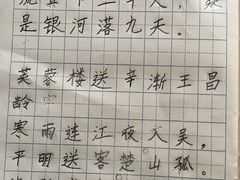 是银河落九天。
芙蓉楼送辛渐王昌
龄
寒雨连江夜入吴，
平明送客楚山孤。